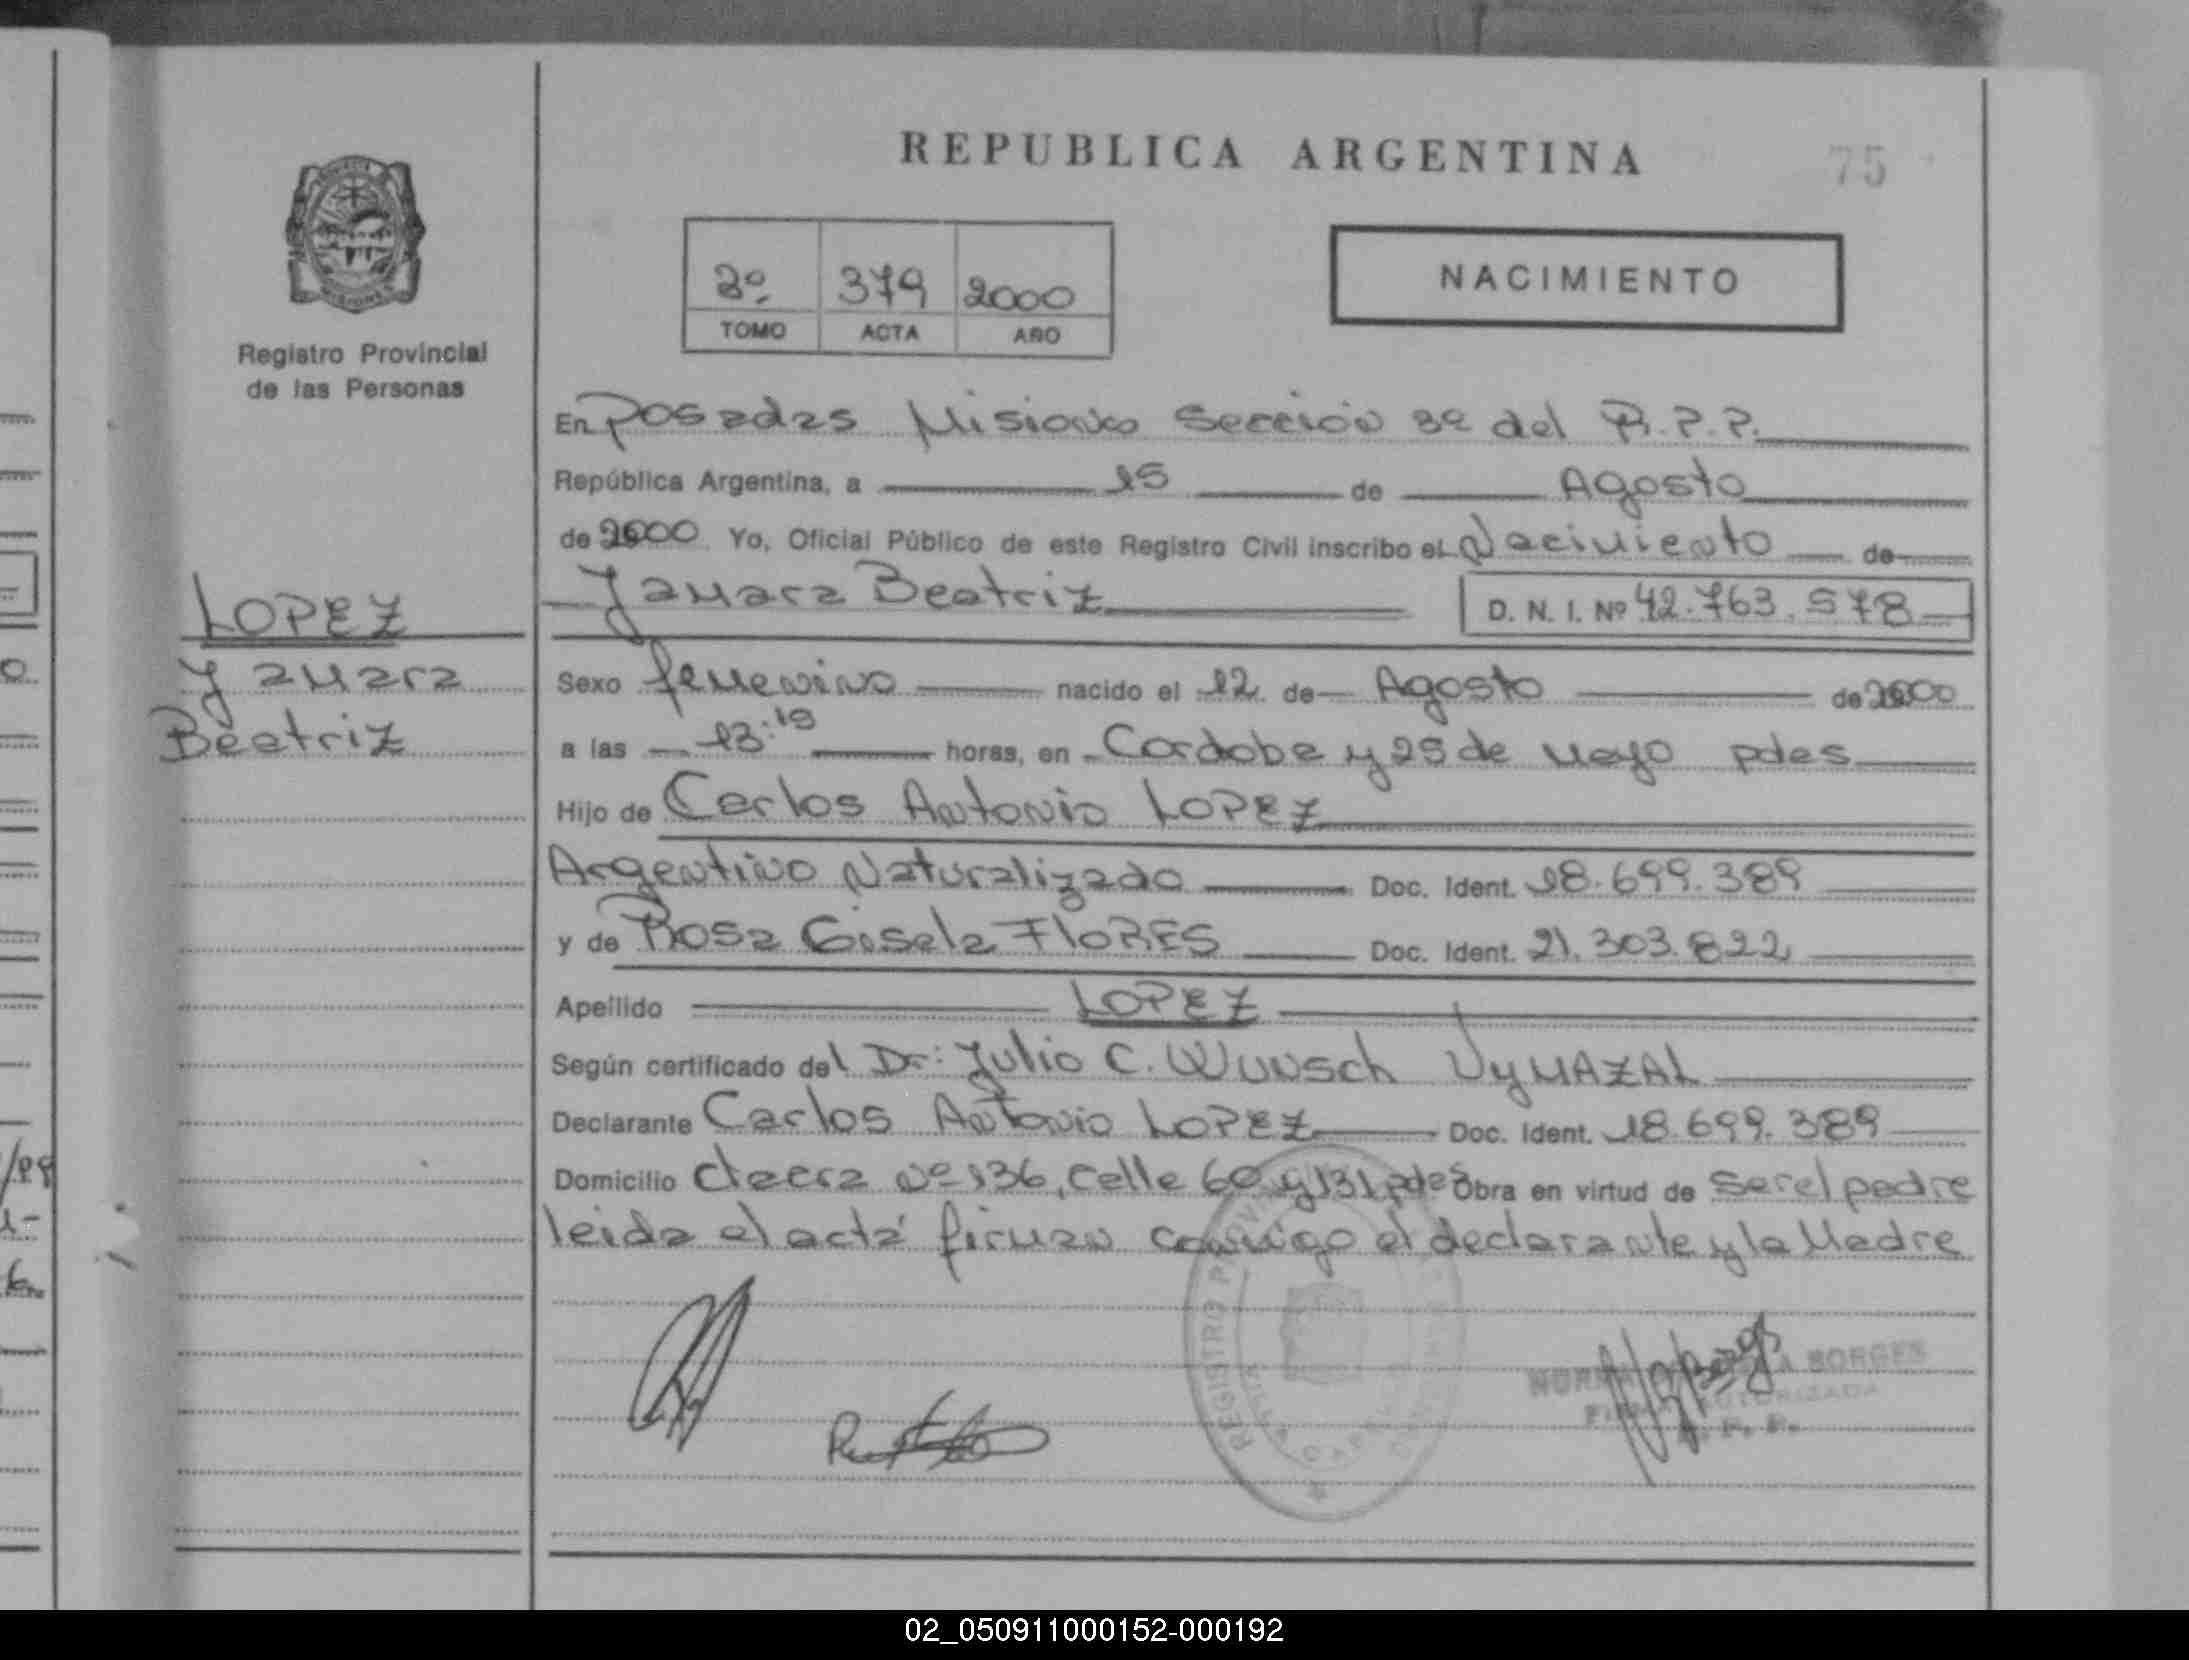 REPUBLICA ARGENTINA
75
NACIMIENTO
379 2000
TOMO ACTA AÑO
Registro Provincial
de las Personas
En Posadas Misiones Sección 3º del R.P.P.
República Argentina, a 15 de Agosto
de 2000 Yo, Oficial Público de este Registro Civil inscribo el Nacimiento de
Yamara Beatriz D. N. I. Nº 42.763.578
LOPEZ
Yamara
Beatriz
Sexo femenino nacido el 12 de Agosto de 2000
a las 13:15 horas, en Cordoba y 25 de Mayo pdas
Hijo de Carlos Antonio LOPEZ
Argentino Naturalizado Doc. Ident. 18.699.389
y de Rosa Gisela FloRES Doc. Ident. 21.303.822
Apellido LOPEZ
Según certificado del Dr: Julio C. Wunsch VyMAZAL
Declarante Carlos Antonio LOPEZ Doc. Ident. 18.699.389
Domicilio chacra Nº 136, calle 60 y 131 pdas Obra en virtud de ser el padre
leida el acta firman conmigo el declarante y la Madre
REGISTRO
BORGES
AUTORIZADA
02_050911000152-000192